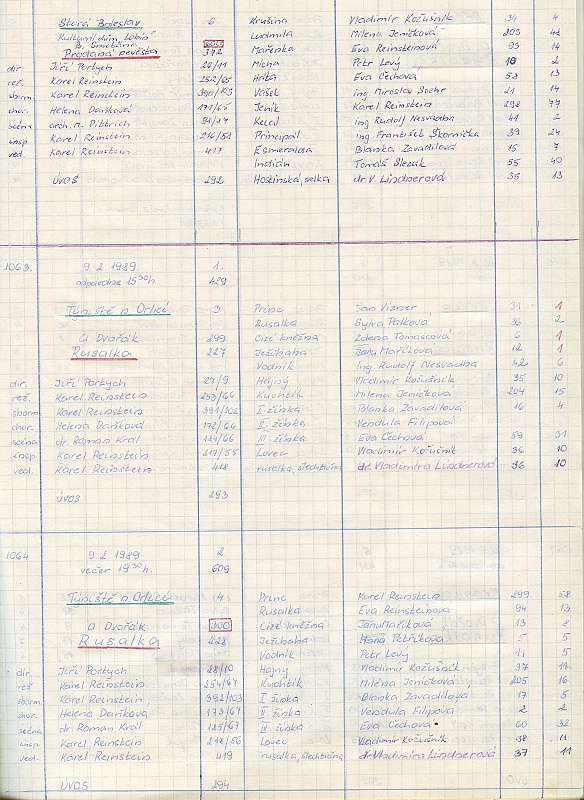 Stará Boleslav 6 Krušina Vladimír Kožušník 34 4
Kulturní dům "Labín" Ludmila Milena Jeničková 203
B. Smetana 600 Mařenka Eva Reinsteinová 93 14
Prodaná nevěsta 372
dir. Jiří Portych 26/11 Mícha Petr Levý 10 2
rež. Karel Reinstein 252/65 Háta Eva Čechová 58 13
sborm. Karel Reinstein 390/103 Vašek ing. Miroslav 21 14
chor. Helena Daňková 171/65 Jeník Karel Reinstein 298 77
scéna arch. M. Dittrich Kecal ing Rudolf Nesvadba 41 2
insp. Karel Reinstein 216/51 Principál ing František Skornička 39 24
ved. Karel Reinstein 417 Esmeralda Blanka Zavadilová 15 7
Indián Tomáš Slezák 55 40
ÚVOS 292 Hostinská, selka dr. V. Lindnerová 35 13
1063. 9. 2. 1989 1.
odpoledne 15 30 h 429
Týniště n. Orlicí 3 Princ Jan Vizner 31 1
Rusalka Sylva Pálková 36 2
A. Dvořák 299 Cizí kněžna Zdena Tomascová 6 1
Rusalka 227 Ježibaba Jana Maříková 12 1
Vodník ing. Rudolf Nesvadba 42 6
dir. Jiří Portych 27/9 Hajný Vladimír Kožušník 35 10
rež. Karel Reinstein 253/66 Kuchtík Milena Jeničková 204 15
sborm. Karel Reinstein 391/102 I. žínka Blanka Zavadilová 16 4
chor. Helena Daňková 172/66 II. žínka Vendula Filipová
scéna dr. Roman Král 124/66 III. žínka Eva Čechová 59 31
insp. Karel Reinstein 217/55 Lovec Vladimír Kožušník 36 10
ved. Karel Reinstein 418 rusalka, šlechtična dr. Vladimíra Lindnerová 36 10
ÚVOS 293
1064 9. 2. 1989 2.
večer 19 30 h. 609
Týniště n. Orlicí 4 Princ Karel Reinstein 299 58
Rusalka Eva Reinsteinová 94 13
A. Dvořák 300 Cizí kněžna Jana Maříková 13 2
Rusalka 228 Ježibaba Hana Petříková 5 5
Vodník Petr Levý 11 5
dir. Jiří Portych 28/10 Hajný Vladimír Kožušník 37 11
rež. Karel Reinstein 254/67 Kuchtík Milena Jeničková 205 16
sborm. Karel Reinstein 392/103 I. žínka Blanka Zavadilová 17 5
chor. Helena Daňková 173/67 II. žínka Vendula Filipová 2 2
scéna dr. Roman Král 125/67 III. žínka Eva Čechová 60 32
insp. Karel Reinstein 218/56 Lovec Vladimír Kožušník 38 11
ved. Karel Reinstein 419 rusalka, šlechtična dr. Vladimíra Lindnerová 37 11
ÚVOS 294